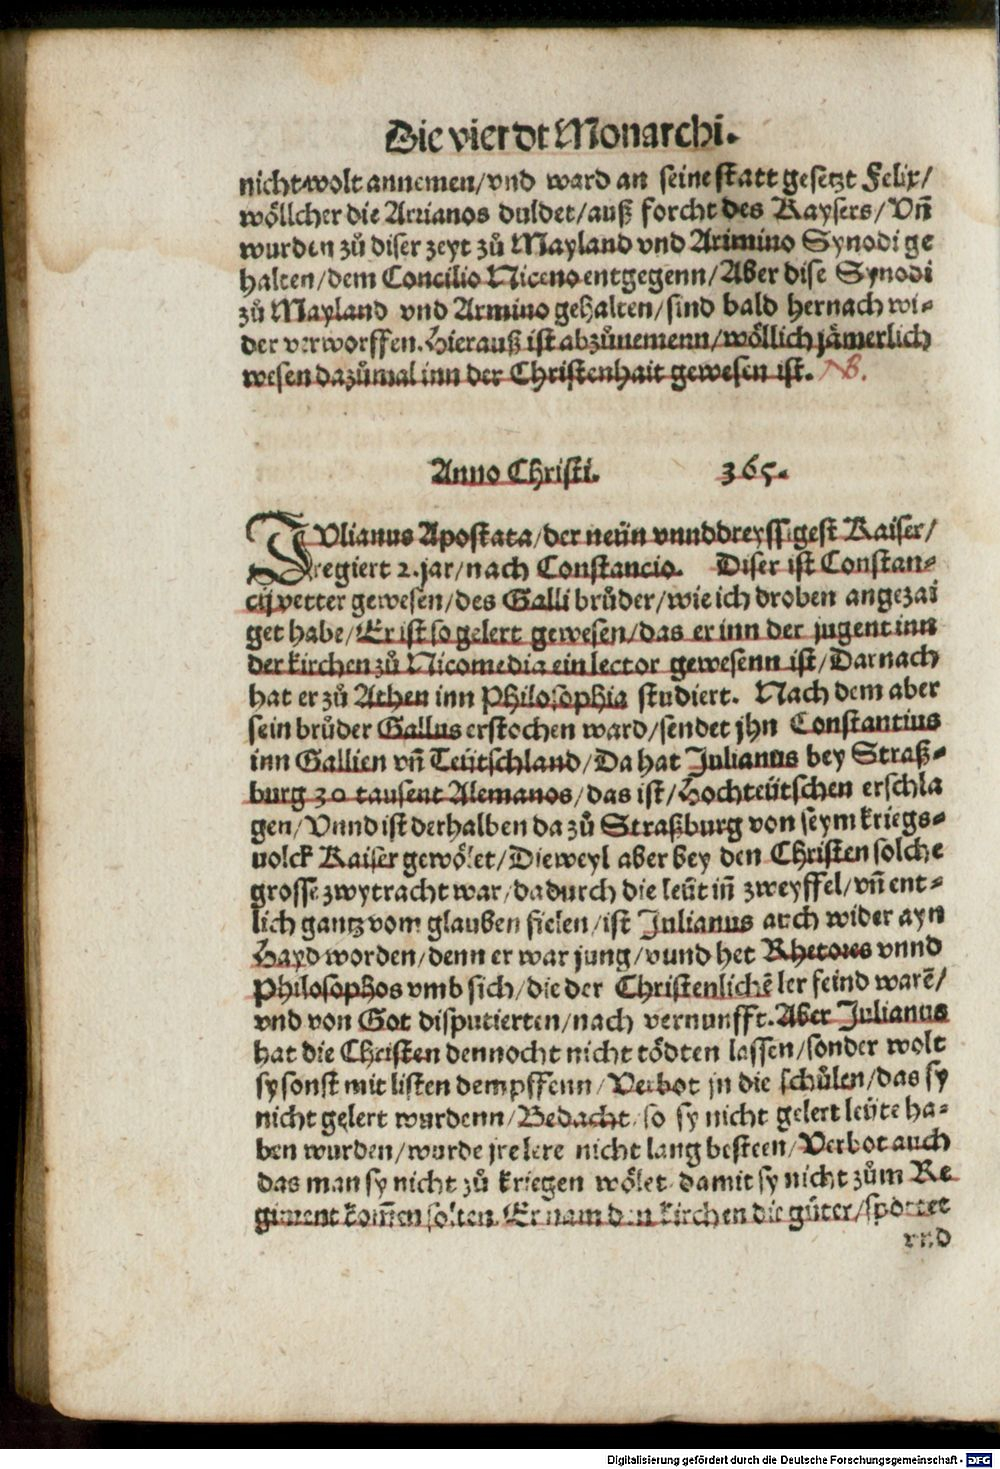 Die vierdt Monarchi.
nicht wolt annemen/vnd ward an seine statt gesetzt Felix/
wöllcher die Arrianos duldet/auß forcht des Kaysers/Vñ
wurden zů diser zeyt zů Mayland vnd Arimino Synodi ge
halten/dem Concilio Niceno entgegenn/Aber dise Synodi
zů Mayland vnd Armino gehalten/sind bald hernach wi-
der verworffen. Hierauß ist abzůnemenn/wöllich jämerlich
wesen dazůmal inn der Christenhait gewesen ist. NB.
Anno Christi. 365.
IVlianus Apostata/der neün vnnddreyssigest Kaiser/
regiert 2. jar/nach Constancio. Diser ist Constan-
cij vetter gewesen/des Galli brůder/wie ich droben angezai
get habe/Er ist so gelert gewesen/das er inn der jugent inn
der kirchen zů Nicomedia ein lector gewesenn ist/Darnach
hat er zů Athen inn Philosophia studiert. Nach dem aber
sein brůder Gallus erstochen ward/sendet jhn Constantius
inn Gallien vñ Teütschland/Da hat Julianus bey Straß-
burg 30 tausent Alemanos/das ist/Hochteütschen erschla
gen/Vnnd ist derhalben da zů Straßburg von seym kriegs-
uolck Kaiser gewölet/Dieweyl aber bey den Christen solche
grosse zwytracht war/dadurch die leüt iñ zweyffel/vñ ent-
lich gantz vom glauben fielen/ist Julianus auch wider ayn
Hayd worden/denn er war jung/vnnd het Rhetores vnnd
Philosophos vmb sich/die der Christenlichē ler feind warē/
vnd von Got disputierten/nach vernunfft. Aber Julianus
hat die Christen dennocht nicht tödten lassen/sonder wolt
sy sonst mit listen dempffenn/Verbot jn die schůlen/das sy
nicht gelert wurdenn/Bedacht/so sy nicht gelert leüte ha-
ben wurden/wurde jre lere nicht lang besteen/Verbot auch
das man sy nicht zů kriegen wölet damit sy nicht zům Re
giment kom̄en solten. Er nam den kirchen die güter/spottet
vnd
Digitalisierung gefördert durch die Deutsche Forschungsgemeinschaft - DFG